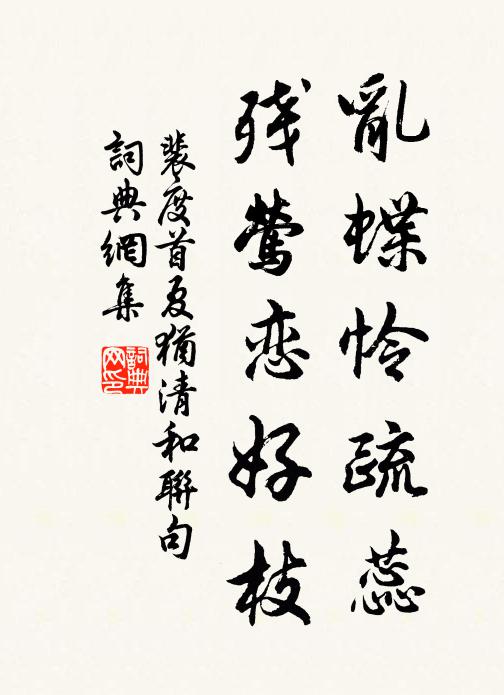 亂蝶怜疏蕊
残莺恋好枝
裴度首夏猶清和聯句
詞典網集
詞典网印